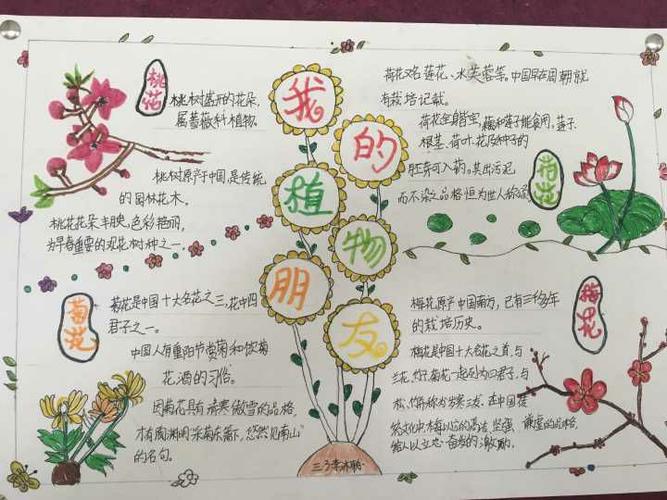 我的植物朋友
桃花
桃树盛开的花朵,
属蔷薇科植物.
桃树原产中国,是传统
的园林花木。
桃花花朵丰腴,色彩艳丽,
为早春重要的观花树种之一.
荷花
荷花又名莲花、水芙蓉等。中国早在周朝就
有栽培记载。
荷花全身皆宝,藕和莲子能食用,莲子、
根茎、荷叶、花及种子的
胚芽可入药。其出污泥
而不染之品格恒为世人称颂
菊花
菊花是中国十大名花之三,花中四
君子之一。
中国人有重阳节赏菊和饮菊
花酒的习俗。
因菊花具有清寒傲雪的品格,
才有陶渊明“采菊东篱下,悠然见南山”
的名句。
梅花
梅花原产中国南方,已有三千多年
的栽培历史。
梅花是中国十大名花之首,与
兰花、竹子、菊花一起列为四君子,与
松、竹并称为岁寒三友。在中国传
统文化中,梅以它的高洁、坚强、谦虚的品格,
给人以立志奋发的激励。